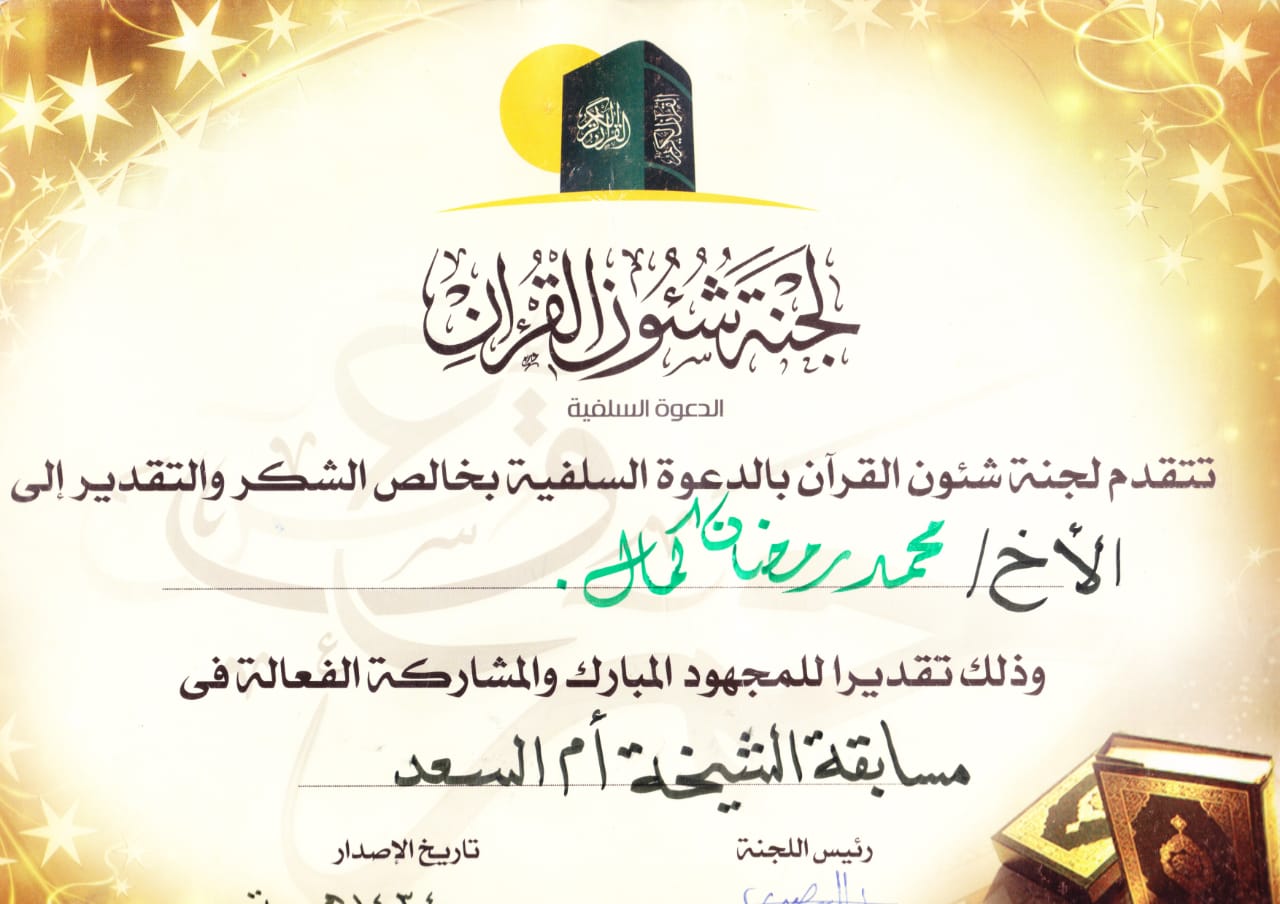 القرآن الكريم
القرآن الكريم
لجنة شئون القرآن
الدعوة السلفية
تتقدم لجنة شئون القرآن بالدعوة السلفية بخالص الشكر والتقدير إلى
الأخ/ محمد رمضان كمال.
وذلك تقديرا للمجهود المبارك والمشاركة الفعالة فى
مسابقة الشيخة أم السعد
رئيس اللجنة
تاريخ الإصدار
١٤٣٤هـ